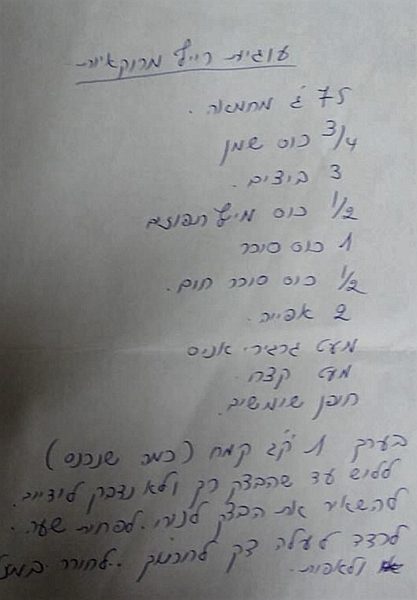 עוגיות רייף מרוקאיות
75 ג מחמאה.
3/4 כוס שמן
3 ביצים.
1/2 כוס מיץ תפוזים
1 כוס סוכר
1/2 כוס סוכר חום.
2 אפייה.
מעט גרגירי אניס
מעט קצח.
חופן שומשום.
בערך 1 ק"ג קמח (כמה שנכנס)
ללוש עד שהבצק רך ולא נדבק לידיים.
להשאיר את הבצק לנוח. לפחות שעה.
לרדד לעלה דק לחתוך.. לחורר במזלג
ולאפות.